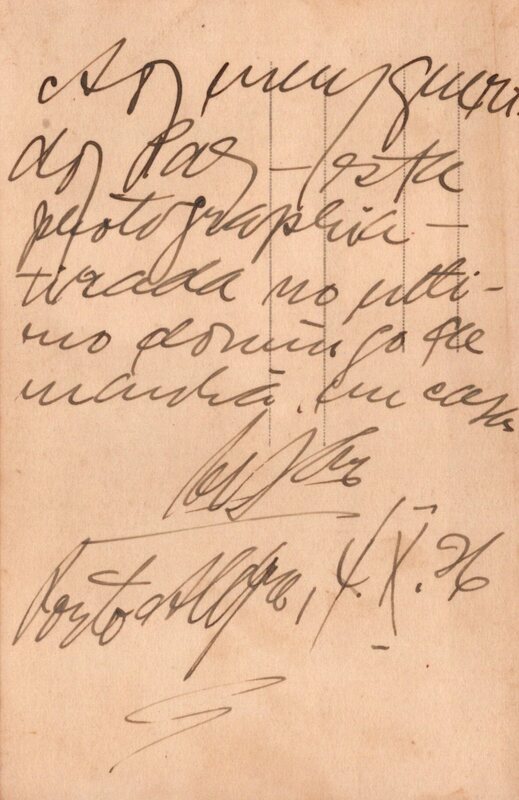 Ao meu queri
do Pae – esta
photographia –
tirada no ulti-
mo domingo de
manhã, em casa
Porto Alegre, 4. X. 26